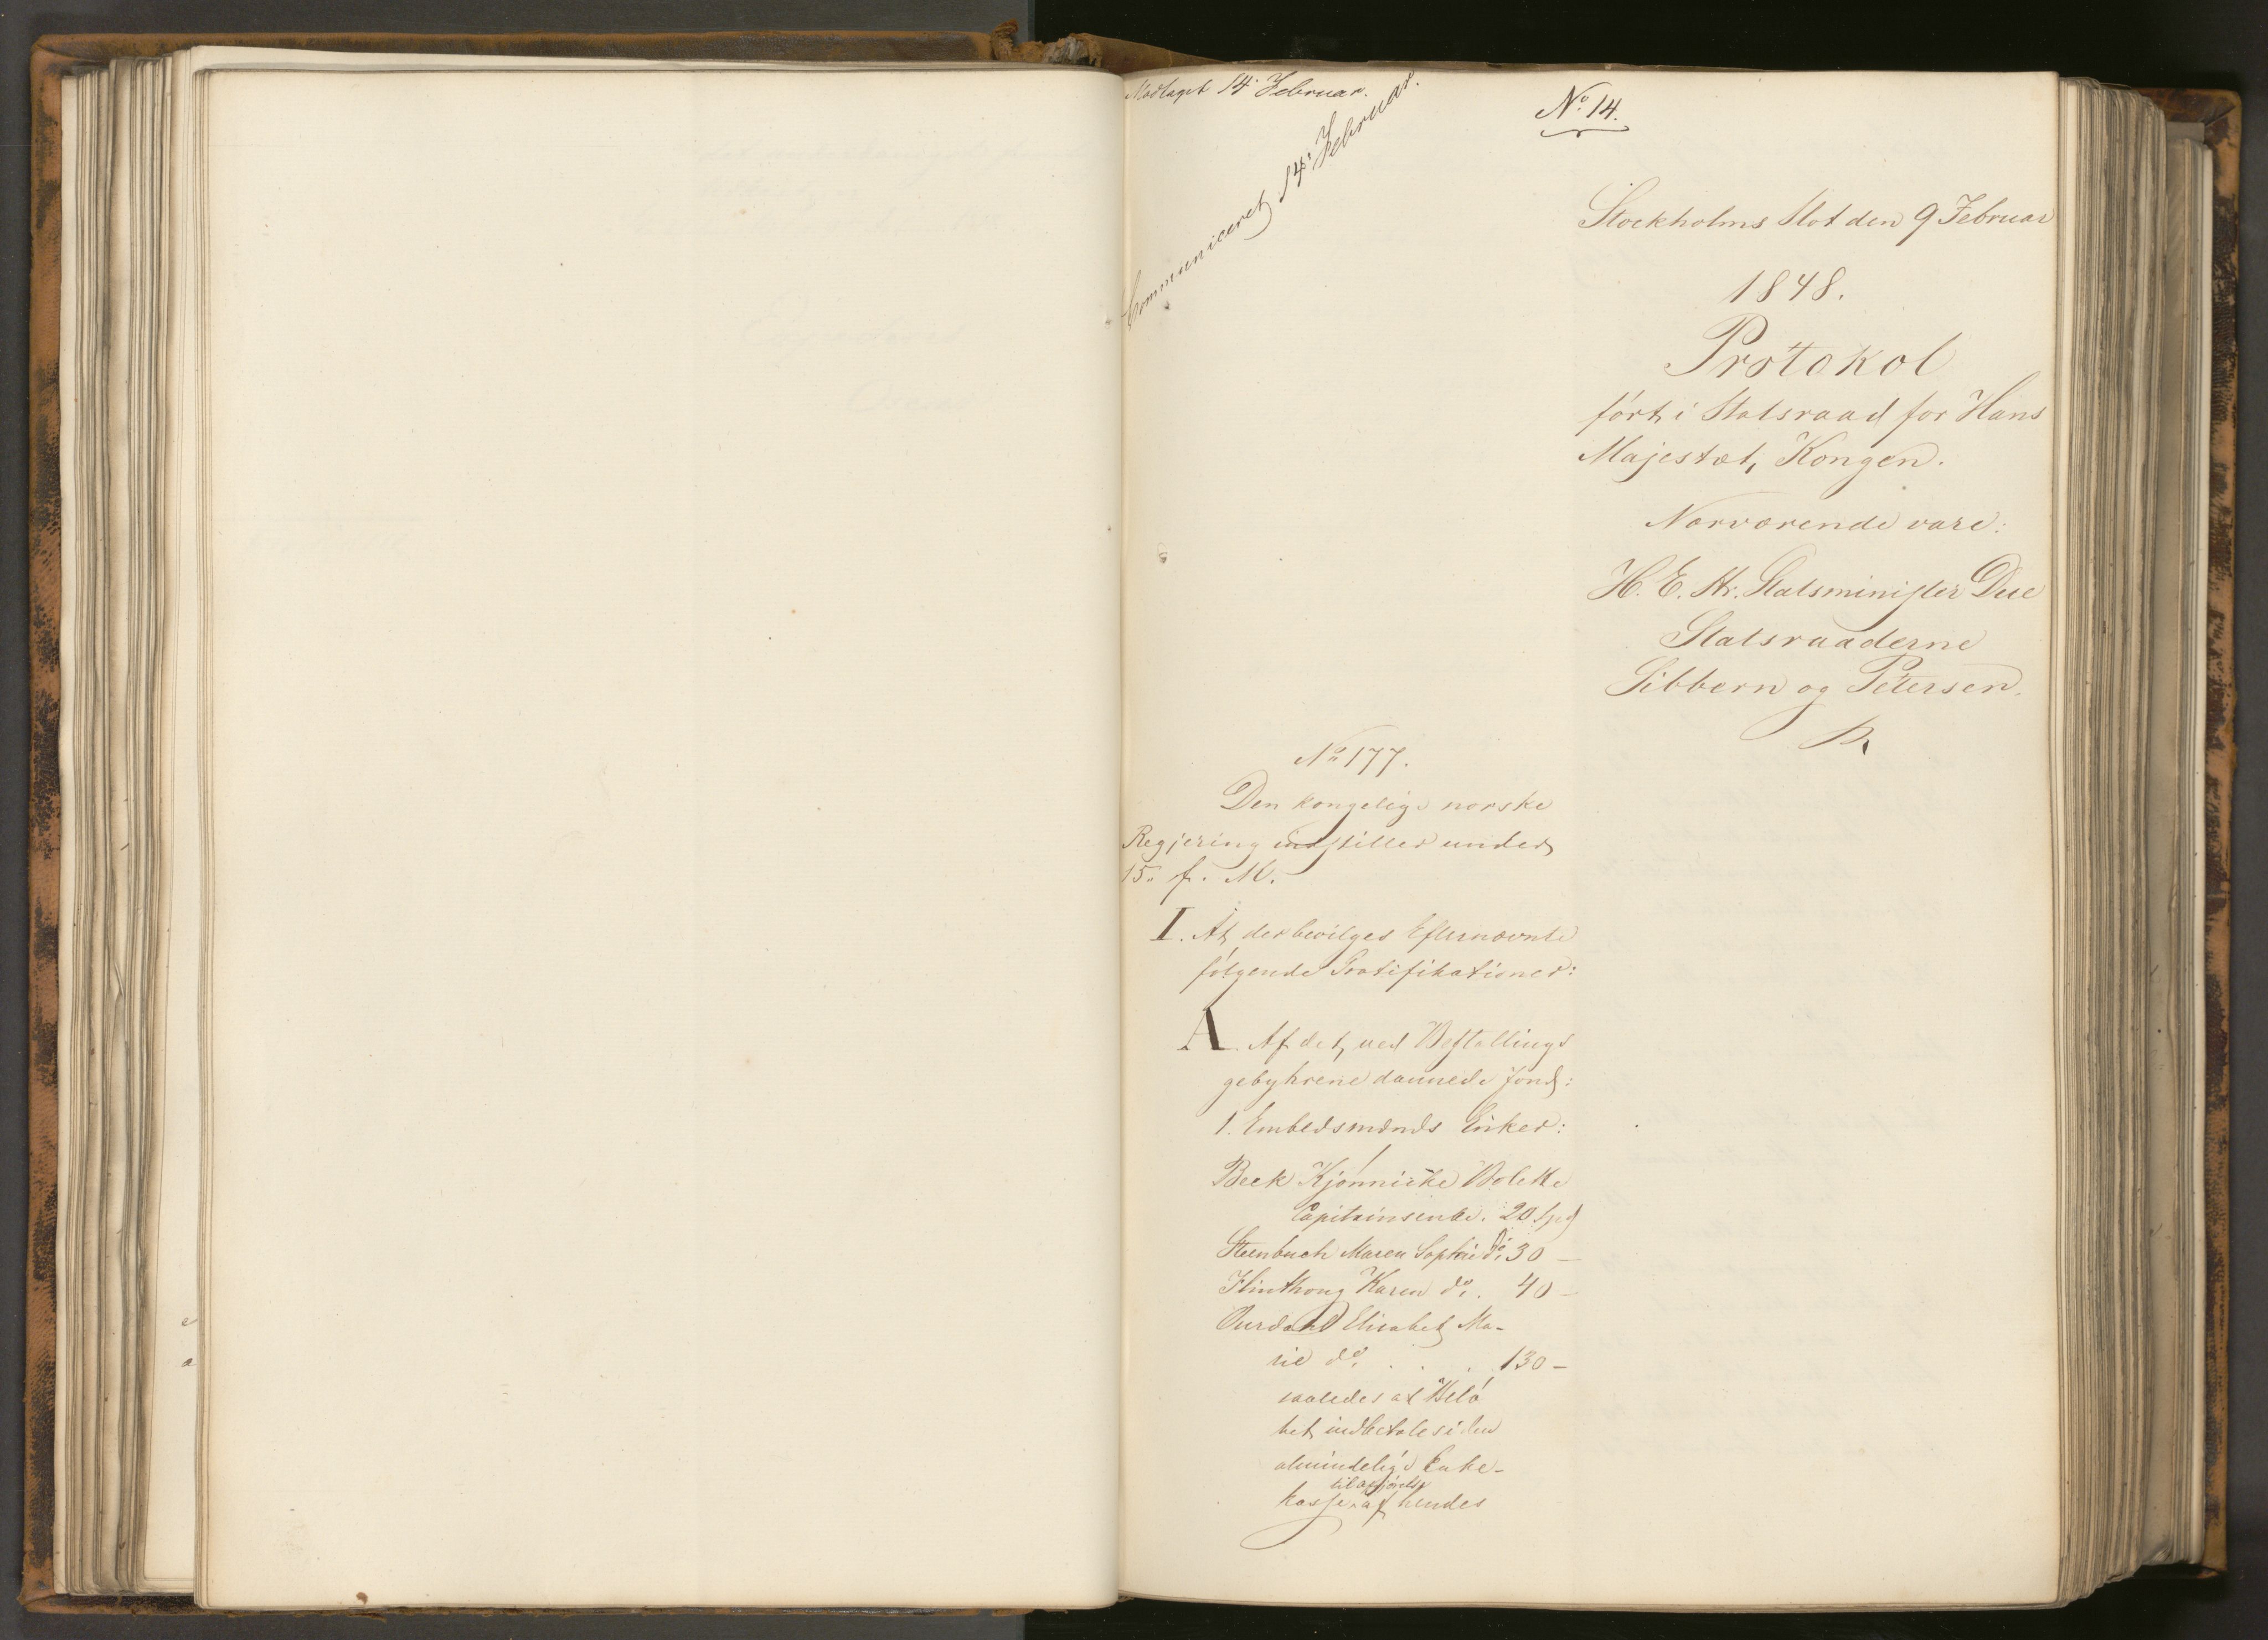 Modtaget 14. Februar.
Communiceret 14. Februar.
No. 14.
Stockholms Slot den 9 Februar
1848.
Protokol
ført i Statsraad for Hans
Majestæt, Kongen.
Nærværende vare:
H. E. Hr. Statsminister Due
Statsraaderne
Sibbern og Petersen.
No 177.
Den kongelige norske
Regjering indstiller under
15. f. M.
I. At der bevilges Efternævnte
følgende Gratifikationer:
A. Af det, ved Bestallings
gebyhrene dannede Fond:
1. Embedsmænds Enker:
Beck Kjønnicke Bolette
Capitainsenke. 20 Spd
Steenbuch Maren Sophie do. 30 —
Flinthoug Karen do. . 40 —
Ourdahl Elisabet Ma-
rie do. . . . 130 —
saaledes at Belø
bet indbetales i den
almindelige Enke-
kasse til Afgjørelse af hendes